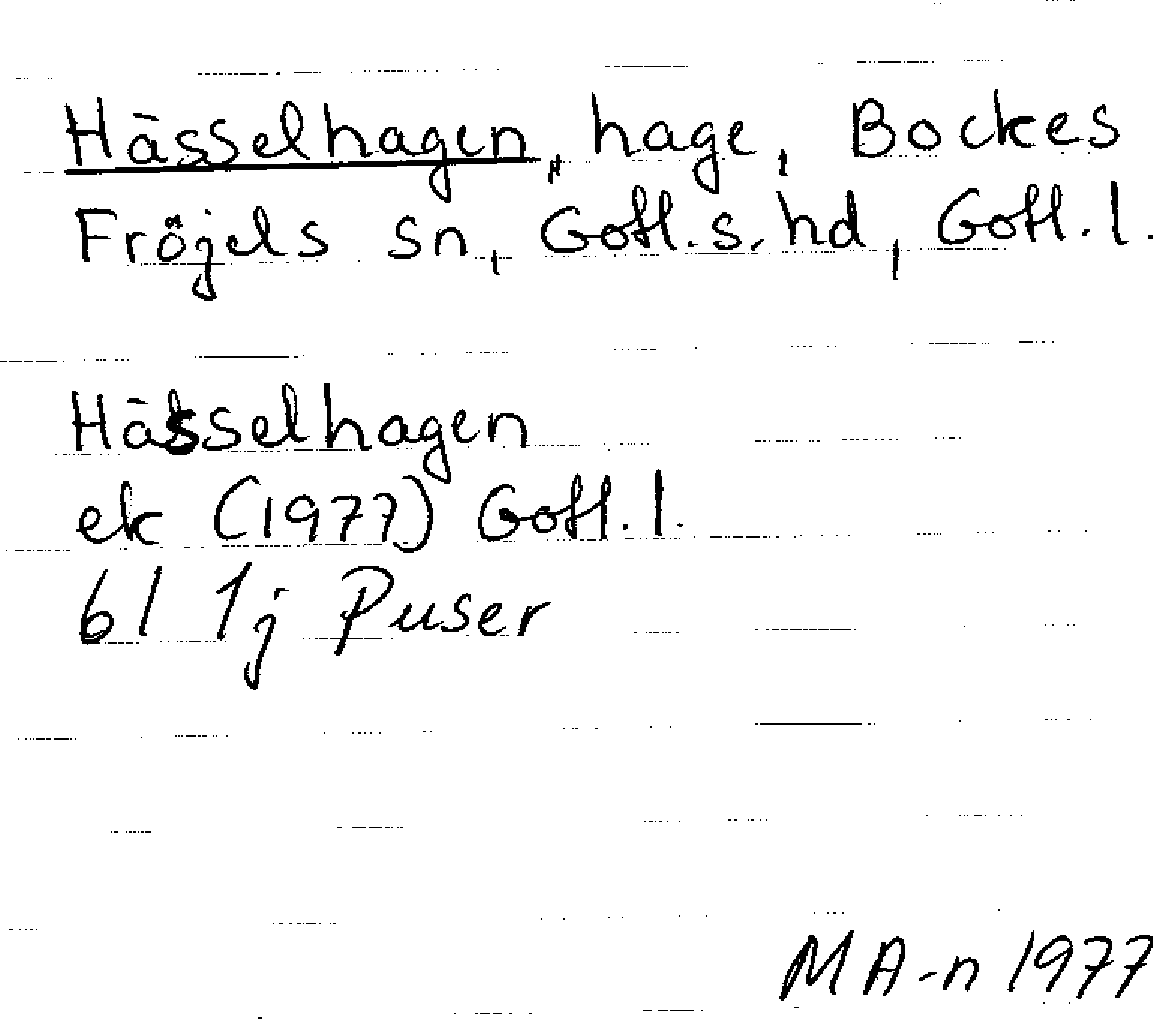 Hässelhagen, hage, Bockes
Fröjels sn, Gotl. s. hd, Gotl. l.
Hässelhagen
ek (1977) Gotl. l.
bl 1j Puser
MA-n 1977